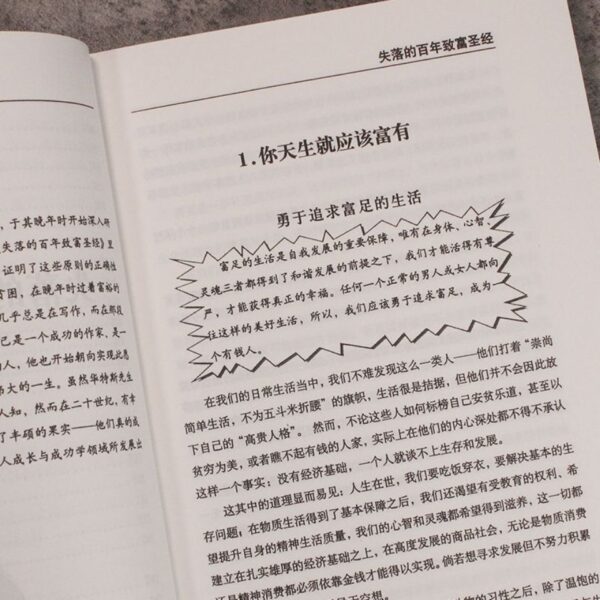 ，于其晚年时开始深入研
失落的百年致富圣经》里
证明了这些原则的正确性
贫困，在晚年时过着富裕的
几乎总是在写作，而在那段
己是一个成功的作家、是一
的人，他也开始朝向实现此愚
伟大的一生。虽然华特斯先生
人知，然而在二十世纪，有幸
了丰硕的果实——他们真的成
人成长与成功学领域所发展出
失落的百年致富圣经
1.你天生就应该富有
勇于追求富足的生活
富足的生活是自我发展的重要保障，唯有在身体、心智、
灵魂三者都得到了和谐发展的前提之下，我们才能活得有尊
严，才能获得真正的幸福。任何一个正常的男人或女人都向
往这样的美好生活，所以，我们应该勇于追求富足，成为一
个有钱人。
在我们的日常生活当中，我们不难发现这么一类人——他们打着“崇尚
简单生活，不为五斗米折腰”的旗帜，生活很是拮据，但他们并不会因此放
下自己的“高贵人格”。然而，不论这些人如何标榜自己安贫乐道，甚至以
贫穷为美，或者瞧不起有钱的人家，实际上在他们的内心深处都不得不承认
这样一个事实：没有经济基础，一个人就谈不上生存和发展。
这其中的道理显而易见：人生在世，我们要吃饭穿衣，要解决基本的生
存问题；在物质生活得到了基本保障之后，我们还渴望有受教育的权利、希
望提升自身的精神生活质量，我们的心智和灵魂都希望得到滋养，这一切都
建立在扎实雄厚的经济基础之上，在高度发展的商品社会，无论是物质消费
还是精神消费都必须依靠金钱才能得以实现。倘若想寻求发展但不努力积累
的习性之后，除了温饱的